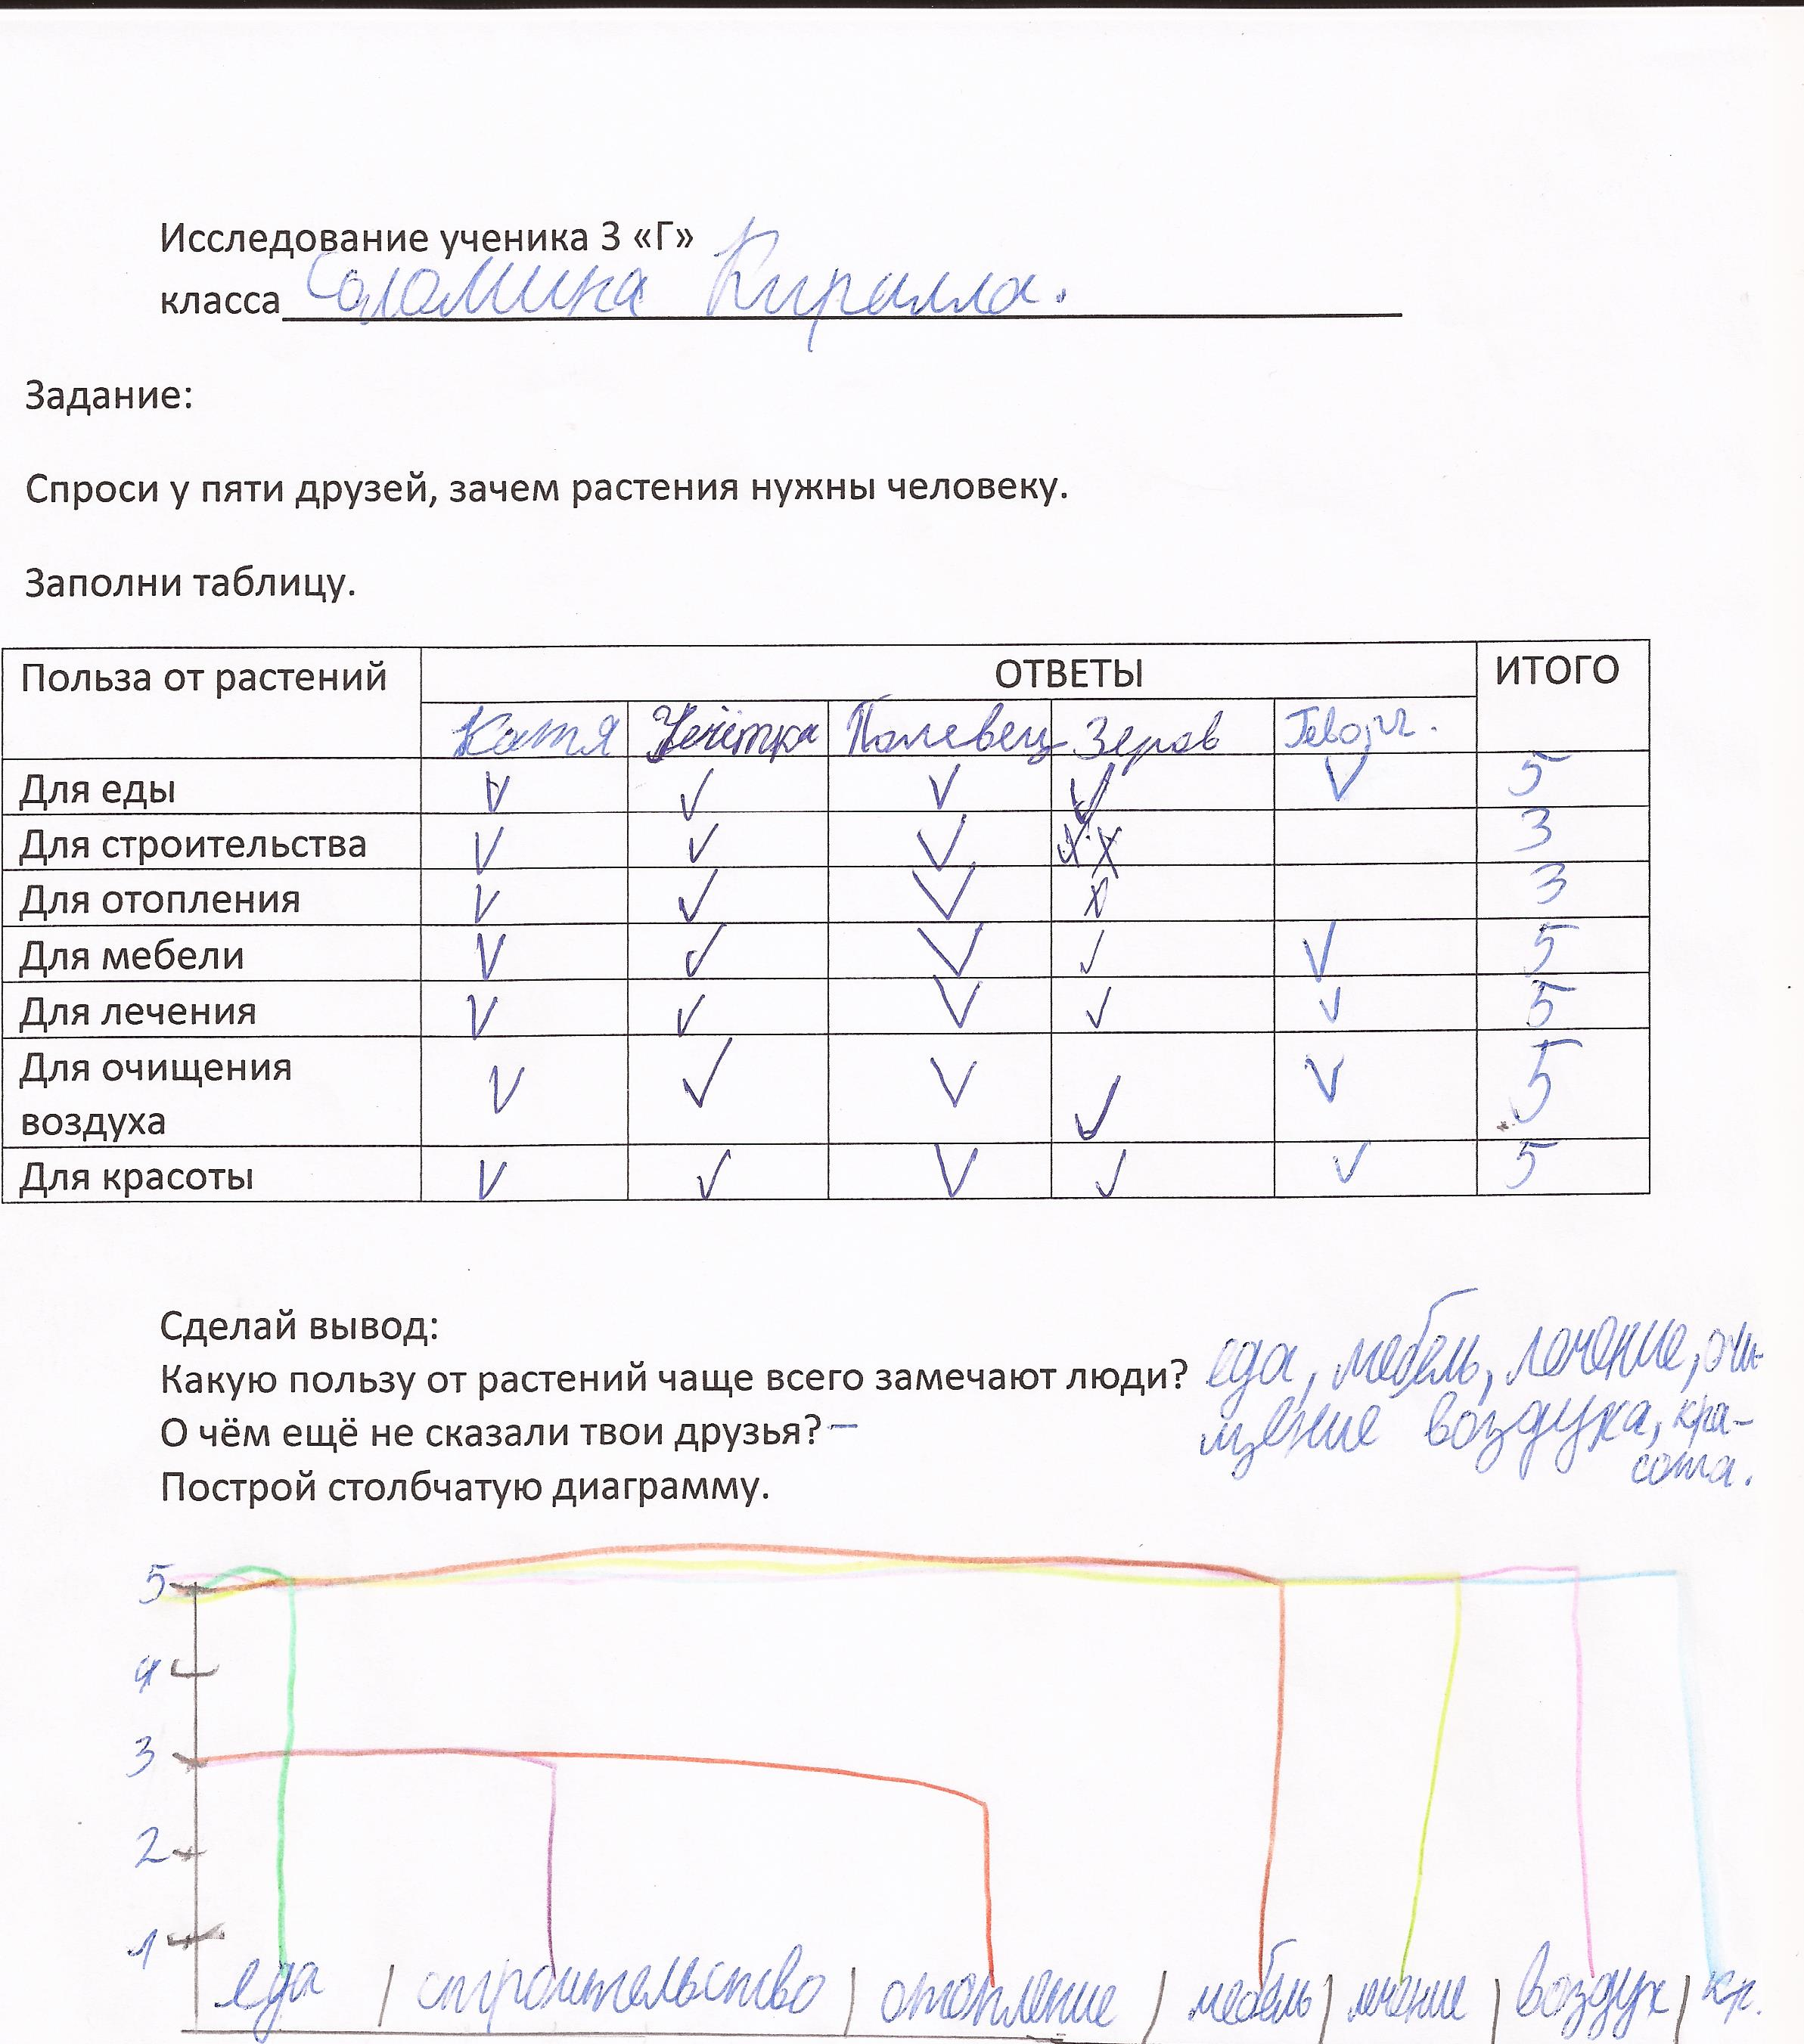 Исследование ученика 3 «Г»
класса Соломина Кирилла.
Задание:
Спроси у пяти друзей, зачем растения нужны человеку.
Заполни таблицу.
Польза от растений ОТВЕТЫ ИТОГО
Катя Полевец Зеров
Для еды V V V V V 5
Для строительства V V V X X 3
Для отопления V V V X 3
Для мебели V V V V V 5
Для лечения V V V V V 5
Для очищения
воздуха V V V V V 5
Для красоты V V V V V 5
Сделай вывод:
Какую пользу от растений чаще всего замечают люди? еда, мебель, лечение, очи-
щение воздуха, кра-
сота.
О чём ещё не сказали твои друзья? –
Построй столбчатую диаграмму.
5
4
3
2
1
еда | строительство | отопление | мебель | лечение | воздух | кр.